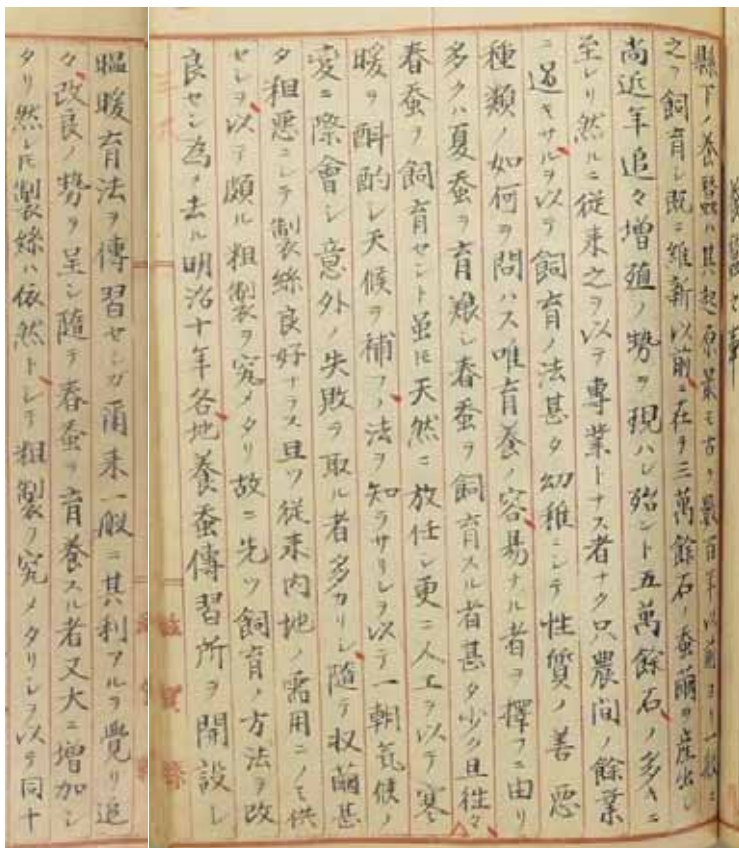 縣下ノ養蚕ハ其起原最モ古ク數百年以前ヨリ一般ニ
之ヲ飼育シ既ニ維新以前ニ在テ三萬餘石ノ蚕繭ヲ産出シ
尚近年追々増殖ノ勢ヲ現ハレ殆ント五萬餘石ノ多キニ
至レリ然ルニ従来之ヲ以テ專業トナス者ナク只農間ノ餘業
ニ過キサルヲ以テ飼育ノ法甚タ幼稚ニシテ性質ノ善悪
種類ノ如何ヲ問ハス唯育養ノ容易ナル者ヲ擇フニ由リ
多クハ夏蚕ヲ育養シ春蚕ヲ飼育スル者甚タ少ク且往々
春蚕ヲ飼育セント虽𪜈天然ニ放任シ更ニ人工ヲ以テ寒
暖ヲ酙酌シ天候ヲ補フノ法ヲ知ラサリシヲ以テ一朝気候ノ
変ニ際會シ意外ノ失敗ヲ取ル者多カリシ隨テ収繭甚
タ粗悪ニシテ製絲良好ナラス且ツ従来内地ノ需用ニノミ供
セシヲ以テ頗ル粗製ヲ究メタリ故ニ先ツ飼育ノ方法ヲ改
良セン為メ去ル明治十年各地養蚕傳習所ヲ開設シ
温暖育法ヲ傳習セシガ爾来一般ニ其利アルヲ覺リ追
々改良ノ勢ヲ呈シ隨テ春蚕ヲ育養スル者又大ニ増加シ
タリ然レ𪜈製絲ハ依然トシテ粗製ヲ究メタリシヲ以テ同十